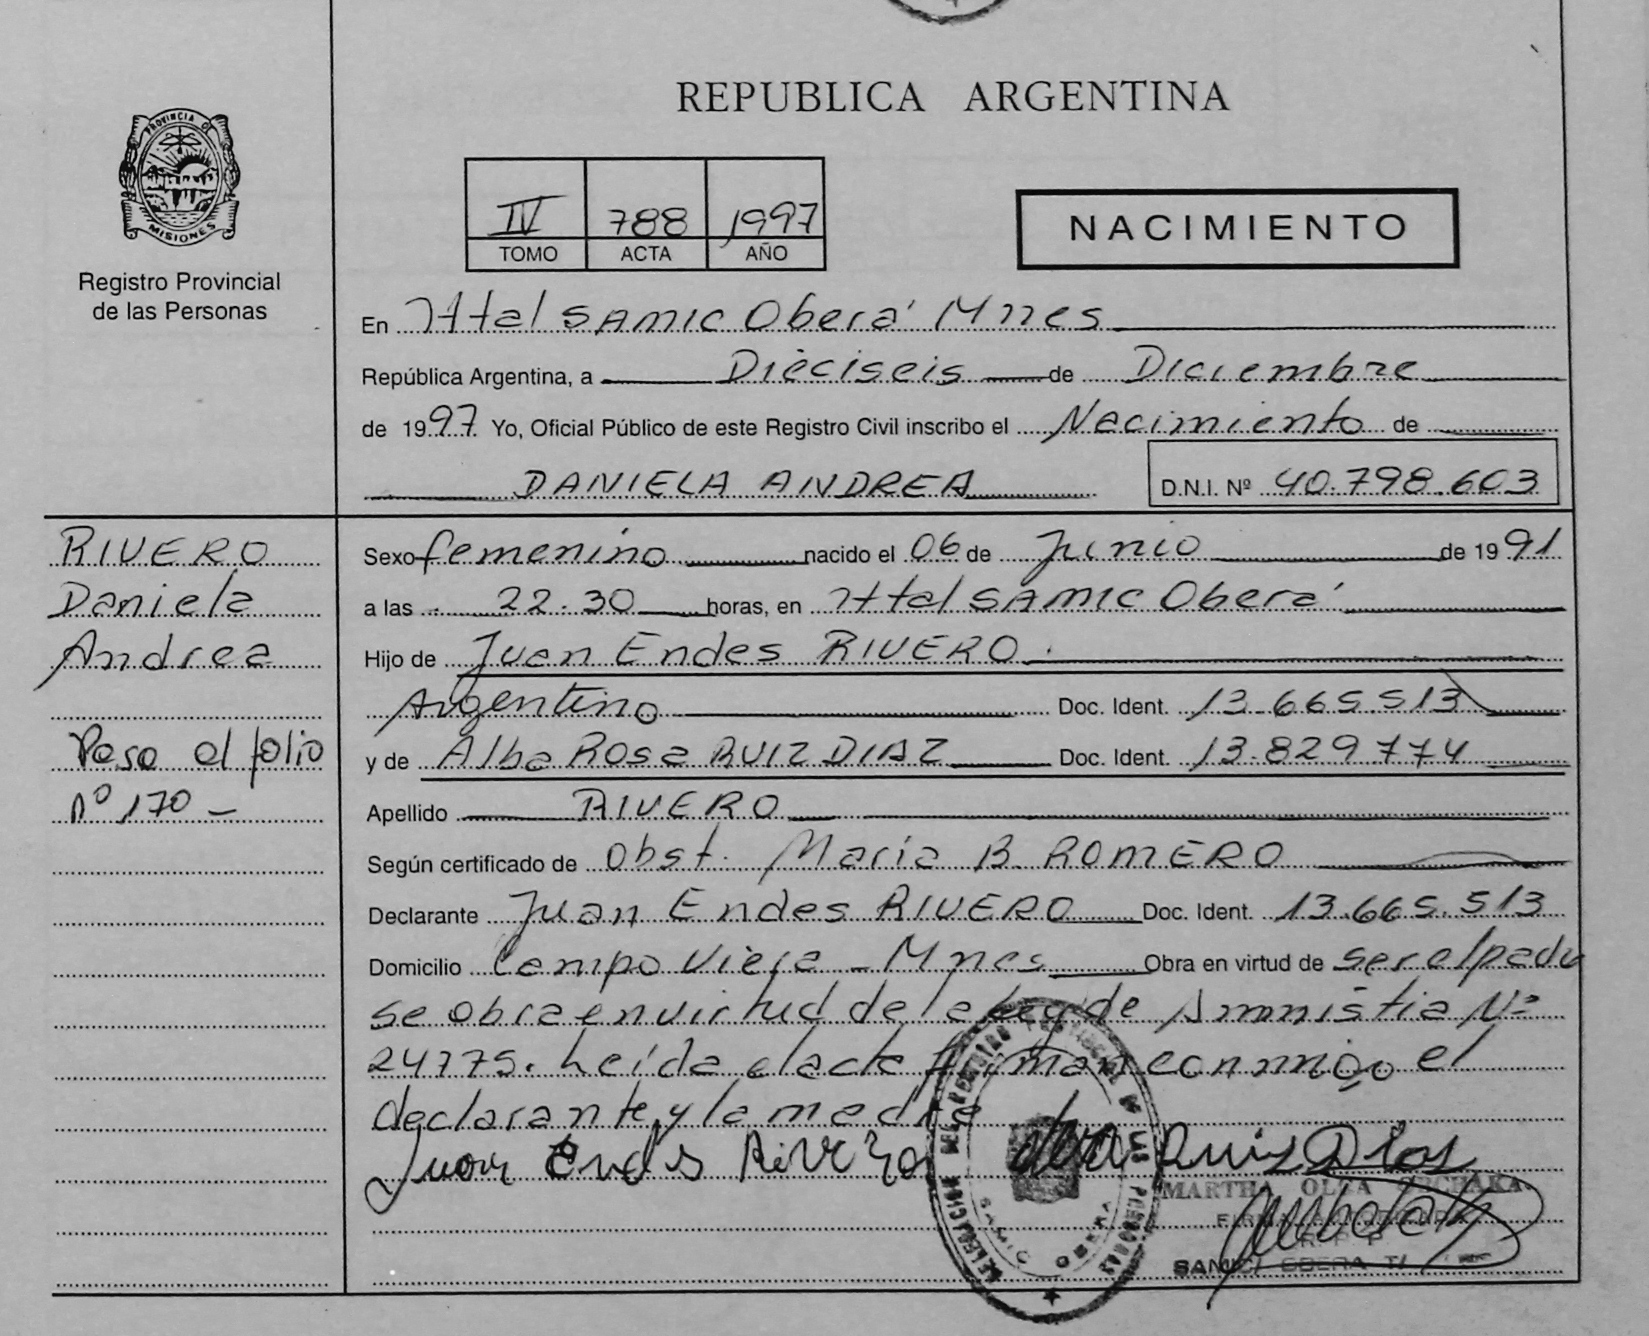 REPUBLICA ARGENTINA
PROVINCIA D
MISIONES
Registro Provincial
de las Personas
IV 788 1997
TOMO ACTA AÑO
NACIMIENTO
En Httal SAMIC Oberá Mnes
República Argentina, a Dieciseis de Diciembre
de 1997 Yo, Oficial Público de este Registro Civil inscribo el Nacimiento de
DANIELA ANDREA D.N.I. Nº 40.798.603
RIVERO
Daniela
Andrea
Pasa al folio
nº 170 -
Sexo femenino nacido el 06 de Junio de 1991
a las 22.30 horas, en Httal SAMIC Oberá
Hijo de Juan Endes RIVERO
Argentino Doc. Ident. 13.665.513
y de Alba Rosa RUIZ DIAZ Doc. Ident. 13.829774
Apellido RIVERO
Según certificado de Obst. Maria B. ROMERO
Declarante Juan Endes RIVERO Doc. Ident. 13.665.513
Domicilio Campo Viera - Mnes Obra en virtud de ser el padre
se obra en virtud de la Ley de Amnistia Nº
24775. Leída el acta firman conmigo el
declarante y la madre
Juan Endes Rivero Ruis Dias
MARTHA OLGA
SAMIC OBERA